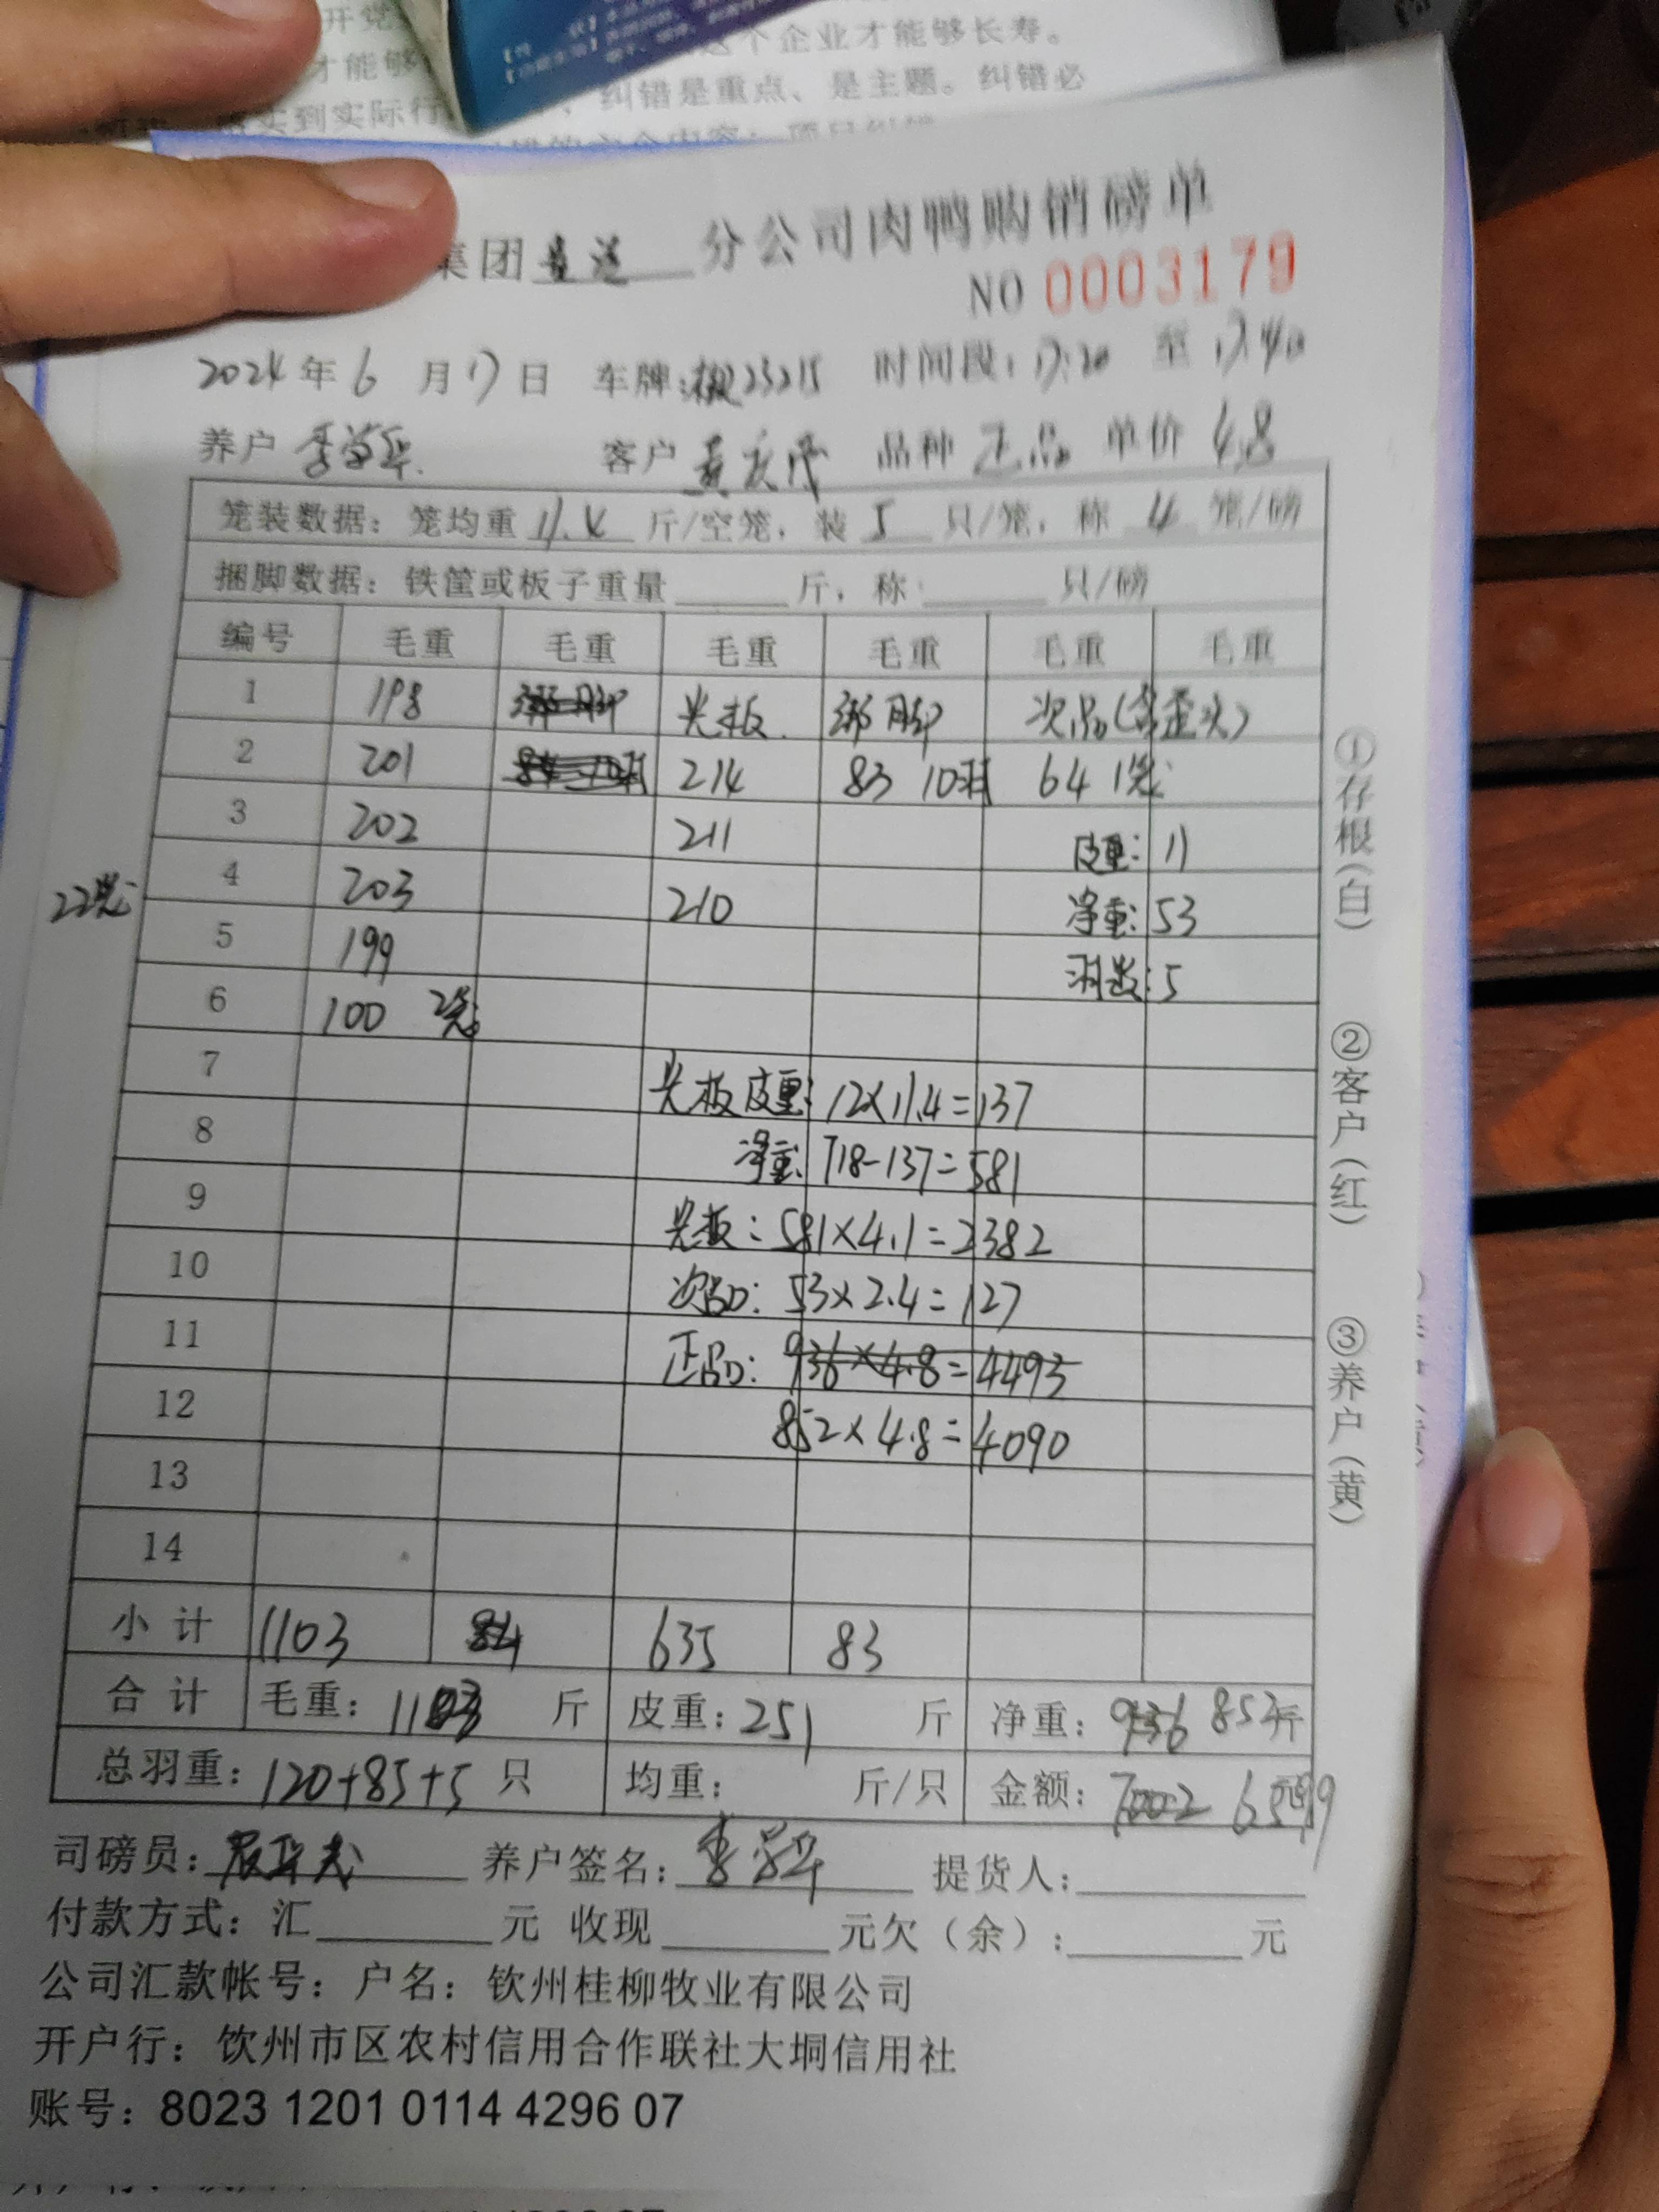 开党
这个企业才能够长寿。
才能够
实到实际行
纠错是重点、是主题。纠错必
集团 分公司肉鸭购销磅单
NO 0003179
2024年6月17日 车牌:桂23215 时间段:17:20 至 17:40
养户 李学华 客户 黄庆茂 品种 正品 单价 4.8
笼装数据:笼均重 11.4 斤/空笼,装 5 只/笼,称 4 笼/磅
捆脚数据:铁筐或板子重量 斤,称: 只/磅
编号 毛重 毛重 毛重 毛重 毛重 毛重
1 198 绑脚 光板 绑脚 次品(含歪头)
2 201 84 10羽 214 83 10羽 64 1笼
3 202 211 皮重: 11
22笼
4 203 210 净重: 53
5 199 羽数: 5
6 100 2笼
7 光板皮重: 12×11.4=137
8 净重: 718-137=581
9 光板: 581×4.1=2382
10 次品: 53×2.4=127
11 正品: 936×4.8=4493
12 852×4.8=4090
13
14
小计 1103 84 635 83
合计 毛重: 1103 斤 皮重: 251 斤 净重: 936 852斤
总羽重: 120+85+5 只 均重: 斤/只 金额: 7002 6599
司磅员: 养户签名: 李学华 提货人:
付款方式: 汇 元 收现 元欠(余): 元
公司汇款帐号: 户名: 钦州桂柳牧业有限公司
开户行: 钦州市区农村信用合作联社大垌信用社
账号: 8023 1201 0114 4296 07
①存根(白)
②客户(红)
③养户(黄)